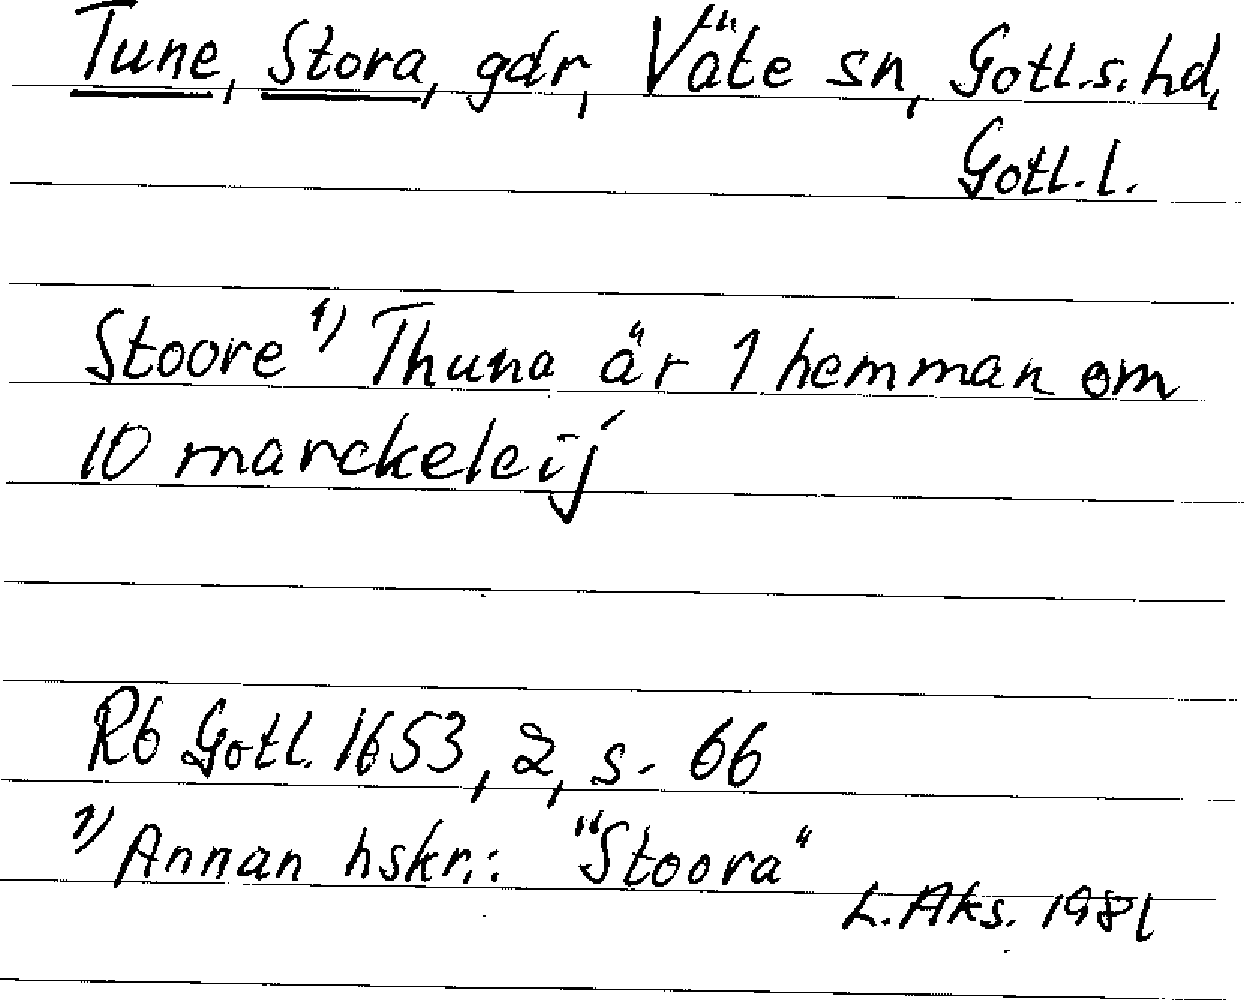 Tune, Stora, gdr, Väte sn, Gotl.s.hd,
Gotl.l.
Stoore 1) Thuna är 1 hemman om
10 marckeleij
Rb Gotl. 1653, 2, s. 66
1) Annan hskr.: "Stoora"
L. Aks. 1981